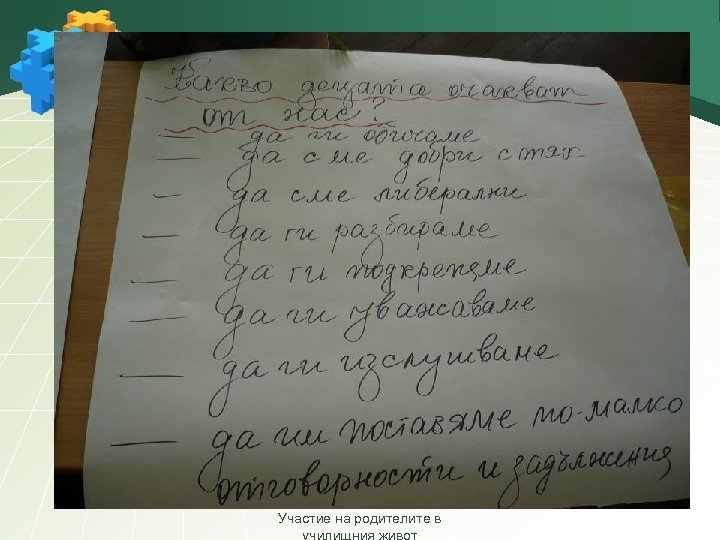 Какво децата очакват
от нас?
— да ги обичаме
— да сме добри с тях
— да сме либерални
— да ги разбираме
— да ги подкрепяме
— да ги уважаваме
— да ги изслушваме
— да им поставяме по-малко
отговорности и задължения
Участие на родителите в
училищния живот